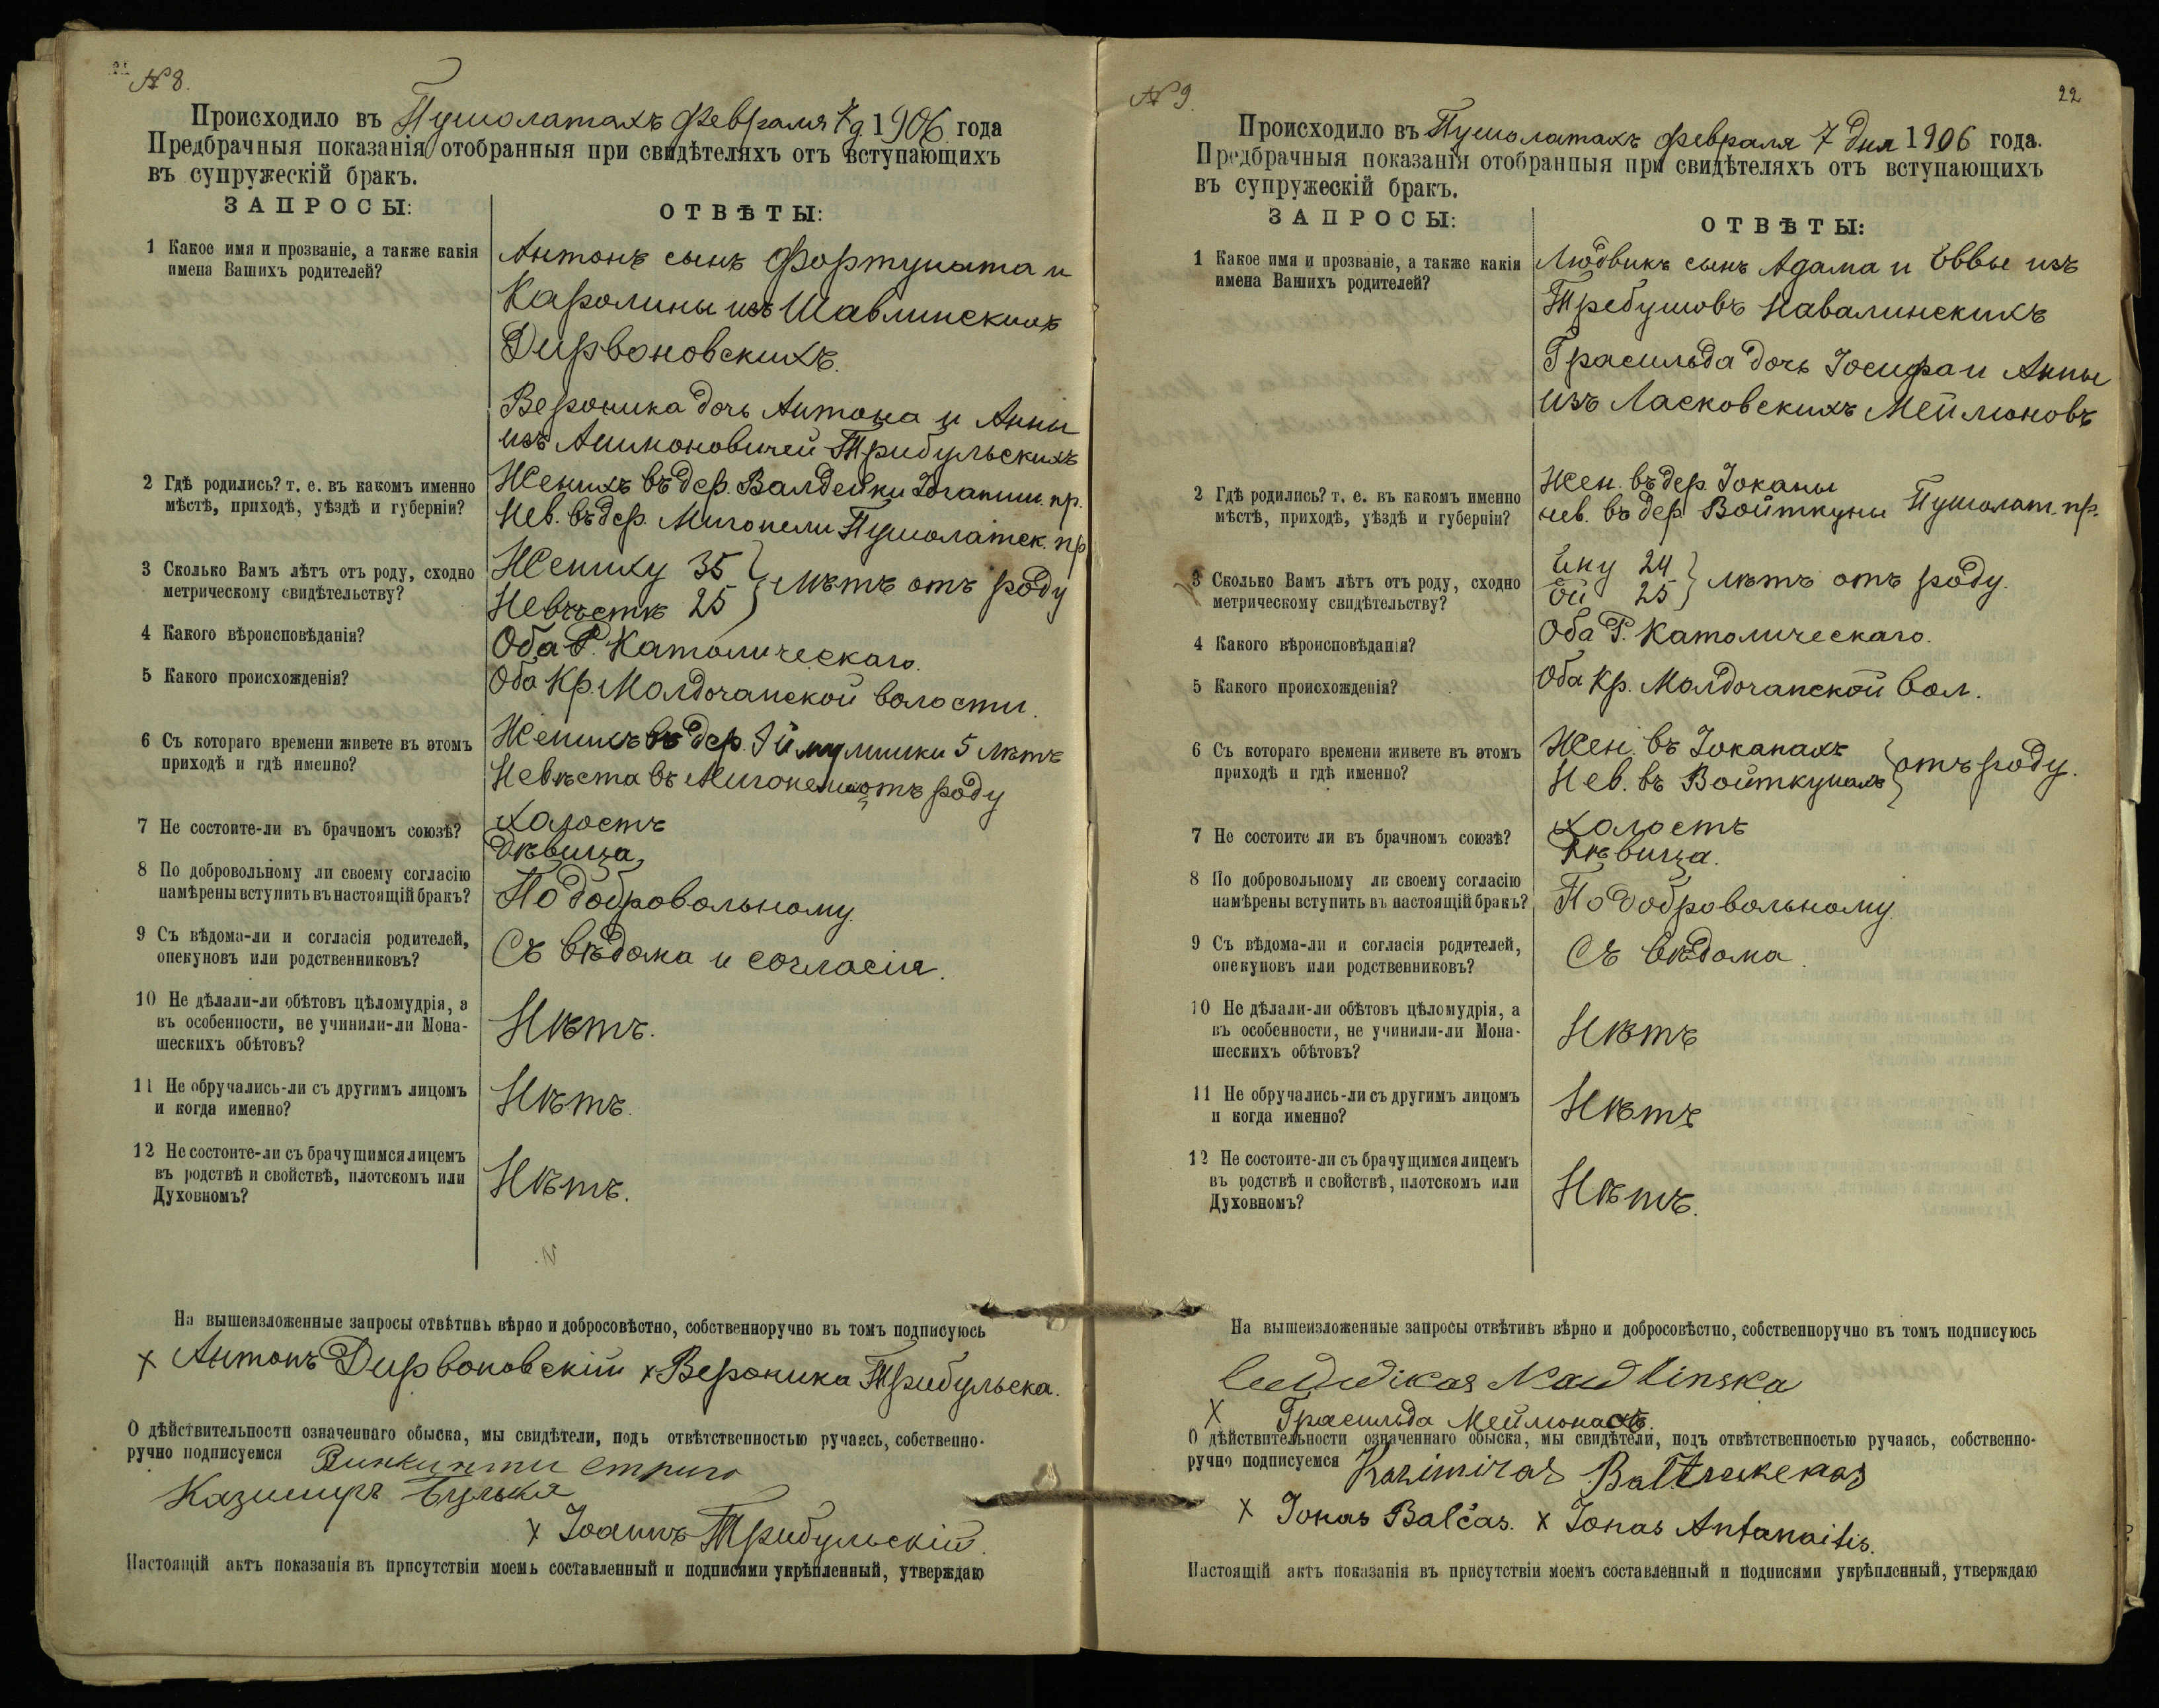 № 8.
Происходило въ Пушолатахъ Февраля 7 д. 1906 года
Предбрачныя показанія отобранныя при свидѣтеляхъ отъ вступающихъ
въ супружескій бракъ.
ЗАПРОСЫ:
ОТВѢТЫ:
1 Какое имя и прозваніе, а также какія
имена Вашихъ родителей?
Антонъ сынъ Фортуната и
Каролины изъ Шавлинскихъ
Дирвоновскихъ.
Вероника дочь Антона и Анны
изъ Ашмоновичей Трибульскихъ
2 Гдѣ родились? т. е. въ какомъ именно
мѣстѣ, приходѣ, уѣздѣ и губерніи?
Женихъ въ дер. Валдейки пр.
Нев. въ дер. Мигонели Пушолатск. пр
3 Сколько Вамъ лѣтъ отъ роду, сходно
метрическому свидѣтельству?
Жениху 35
Невѣстѣ 25
лѣтъ отъ роду
4 Какого вѣроисповѣданія?
Оба Р. Католическаго.
5 Какого происхожденія?
Оба Кр. Молдочанской волости.
6 Съ котораго времени живете въ этомъ
приходѣ и гдѣ именно?
Женихъ въ дер. 5 лѣтъ
Невѣста въ отъ роду
7 Не состоите-ли въ брачномъ союзѣ?
Холостъ
Дѣвица
8 По добровольному ли своему согласію
намѣрены вступить въ настоящій бракъ?
По добровольному.
9 Съ вѣдома-ли и согласія родителей,
опекуновъ или родственниковъ?
Съ вѣдома и согласія.
10 Не дѣлали-ли обѣтовъ цѣломудрія, а
въ особенности, не учинили-ли Мона-
шескихъ обѣтовъ?
Нѣтъ.
11 Не обручались-ли съ другимъ лицомъ
и когда именно?
Нѣтъ.
12 Не состоите-ли съ брачущимся лицемъ
въ родствѣ и свойствѣ, плотскомъ или
Духовномъ?
Нѣтъ.
На вышеизложенные запросы отвѣтивъ вѣрно и добросовѣстно, собственноручно въ томъ подписуюсь
x Антонъ Дирвоновскій x Вероника Трибульска.
О дѣйствительности означеннаго обыска, мы свидѣтели, подъ отвѣтственностью ручаясь, собственно-
ручно подписуемся
Казимиръ
x Іоаннъ Трибульскій.
Настоящій актъ показанія въ присутствіи моемъ составленный и подписями укрѣпленный, утверждаю
№ 9.
22
Происходило въ Пушолатахъ Февраля 7 дня 1906 года.
Предбрачныя показанія отобранныя при свидѣтеляхъ отъ вступающихъ
въ супружескій бракъ.
ЗАПРОСЫ:
ОТВѢТЫ:
1 Какое имя и прозваніе, а также какія
имена Вашихъ родителей?
Людвикъ сынъ Адама и Еввы изъ
Требушовъ Навалинскихъ
Грасильда дочь Іосифа и Анны
изъ Ласковскихъ Меймоновъ
2 Гдѣ родились? т. е. въ какомъ именно
мѣстѣ, приходѣ, уѣздѣ и губерніи?
Жен. въ дер. Іоканы
нев. въ дер. Войткуны
Пушолат. пр.
3 Сколько Вамъ лѣтъ отъ роду, сходно
метрическому свидѣтельству?
Ему 24
Ей 25
лѣтъ отъ роду.
4 Какого вѣроисповѣданія?
Оба Р. Католическаго.
5 Какого происхожденія?
Оба Кр. Молдочанской вол.
6 Съ котораго времени живете въ этомъ
приходѣ и гдѣ именно?
Жен. въ Іоканахъ
Нев. въ Войткунахъ
отъ роду.
7 Не состоите ли въ брачномъ союзѣ?
Холостъ
Дѣвица.
8 По добровольному ли своему согласію
намѣрены вступить въ настоящій бракъ?
По добровольному.
9 Съ вѣдома-ли и согласія родителей,
опекуновъ или родственниковъ?
Съ вѣдома.
10 Не дѣлали-ли обѣтовъ цѣломудрія, а
въ особенности, не учинили-ли Мона-
шескихъ обѣтовъ?
Нѣтъ
11 Не обручались-ли съ другимъ лицомъ
и когда именно?
Нѣтъ
12 Не состоите-ли съ брачущимся лицемъ
въ родствѣ и свойствѣ, плотскомъ или
Духовномъ?
Нѣтъ.
На вышеизложенные запросы отвѣтивъ вѣрно и добросовѣстно, собственноручно въ томъ подписуюсь
x Грасильда
О дѣйствительности означеннаго обыска, мы свидѣтели, подъ отвѣтственностью ручаясь, собственно-
ручно подписуемся Kazimiras
x Jonas Balčas. x Jonas Antanaitis.
Настоящій актъ показанія въ присутствіи моемъ составленный и подписями укрѣпленный, утверждаю